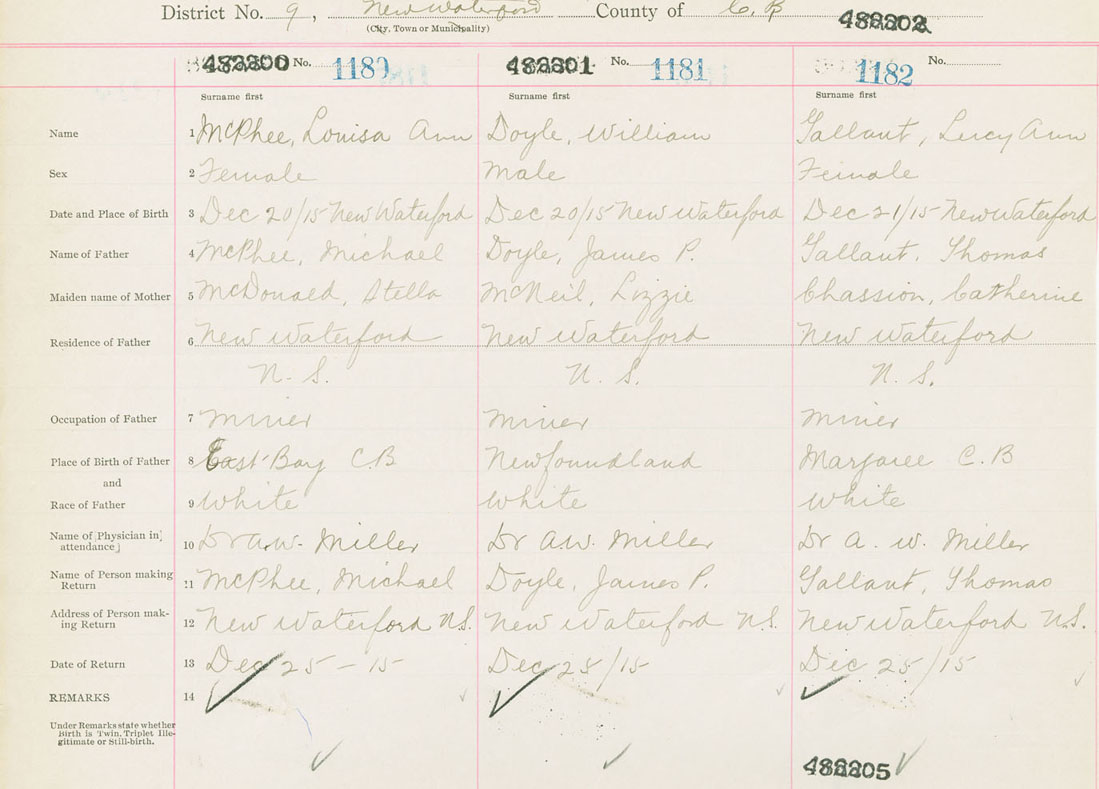 District No. 9, New Waterford County of C. B
(City, Town or Municipality)
No. 1180 No. 1181 1182 No.
Surname first Surname first Surname first
Name 1 McPhee, Louisa Ann Doyle, William Gallant, Lucy Ann
Sex 2 Female Male Female
Date and Place of Birth 3 Dec 20/15 New Waterford Dec 20/15 New Waterford Dec 21/15 New Waterford
Name of Father 4 McPhee, Michael Doyle, James P. Gallant, Thomas
Maiden name of Mother 5 McDonald, Stella McNeil, Lizzie Chassion, Catherine
Residence of Father 6 New Waterford New Waterford New Waterford
N. S. N. S. N. S.
Occupation of Father 7 Miner Miner Miner
Place of Birth of Father 8 East Bay C B Newfoundland Margaree C. B
and
Race of Father 9 White White White
Name of [Physician in 10 Dr A. W. Miller Dr A W. Miller Dr A. W. Miller
attendance]
Name of Person making 11 McPhee, Michael Doyle, James P. Gallant, Thomas
Return
Address of Person mak- 12 New Waterford N.S. New Waterford N.S. New Waterford N.S.
ing Return
Date of Return 13 Dec 25 - 15 Dec 25/15 Dec 25/15
REMARKS 14
Under Remarks state whether
Birth is Twin, Triplet Ille-
gitimate or Still-birth.